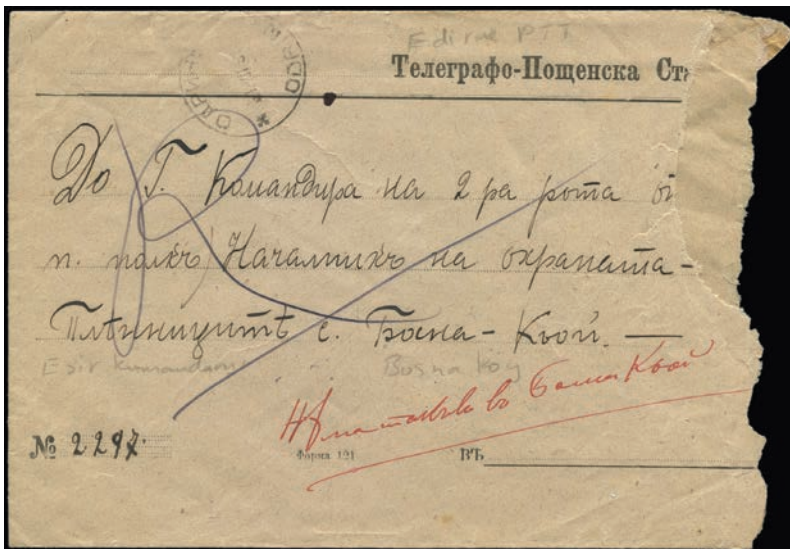 Edirne PTT
ОДРИН
Телеграфо-Пощенска Ст
До Г. Командира на 2 ра рота
п. полкъ Началникъ на охраната-
Плѣнницитѣ с. Босна-Кьой. —
Esir kumandanı Bosna köy
въ Босна Кьой
№ 2297.
Форма 121 ВЪ